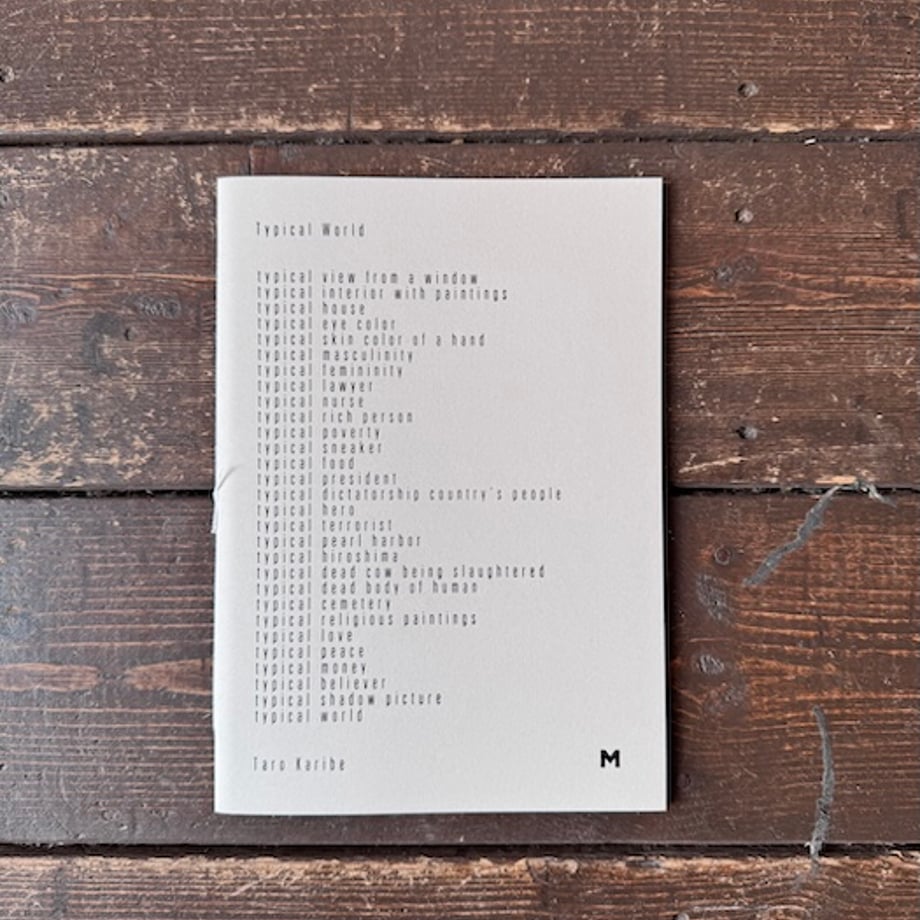 Typical World
typical view from a window
typical interior with paintings
typical house
typical eye color
typical skin color of a hand
typical masculinity
typical femininity
typical lawyer
typical nurse
typical rich person
typical poverty
typical sneaker
typical food
typical president
typical dictatorship country's people
typical hero
typical terrorist
typical pearl harbor
typical hiroshima
typical dead cow being slaughtered
typical dead body of human
typical cemetery
typical religious paintings
typical love
typical peace
typical money
typical believer
typical shadow picture
typical world
Taro Karibe
M